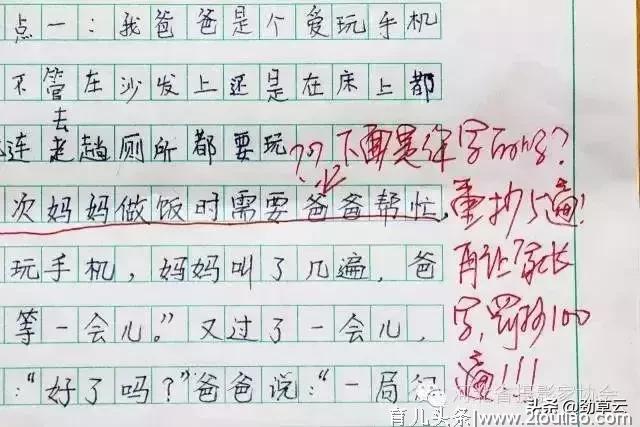 点一：我爸爸是个爱玩手机
不管在沙发上还是在床上都
去
连老趟厕所都要玩
??下面是你写的吗？
次妈妈做饭时需要爸爸帮忙，
重抄5遍！
玩手机，妈妈叫了几遍，爸
再让家长
等一会儿。”又过了一会儿，
字，罚抄100
：“好了吗？”爸爸说：“一局
遍！！！
河北省摄影家协会
头条@劲草云
育儿头条 www.21outiao.com